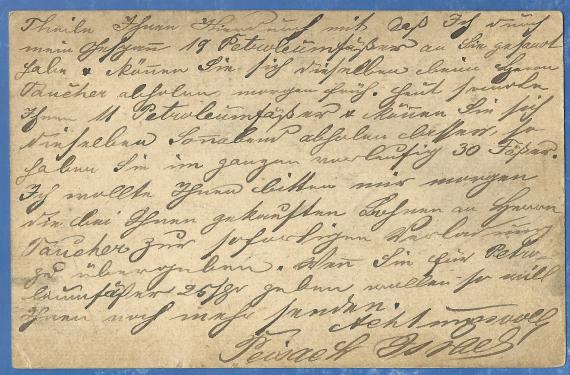 Theile Ihnen hierdurch mit, daß Ich durch
mein Gespann 19 Petroleumfäßer an Sie gesandt
habe & können Sie sich dieselben beim Herrn
Taucher abholen, morgen früh. Heut sende
Ihnen 11 Petroleumfäßer & können Sie sich
dieselben Sonabend abholen lassen, so
haben Sie im ganzen vorläufig 30 Fäßer.
Ich wollte Ihnen bitten mir morgen
die bei Ihnen gekauften Bohnen an Herrn
Taucher zur sofortigen Verladung
zu übergeben. Wen Sie für Petro-
leumfäßer geben wollen so will
Ihnen noch mehr senden.
Achtungsvoll
Peisach Israel